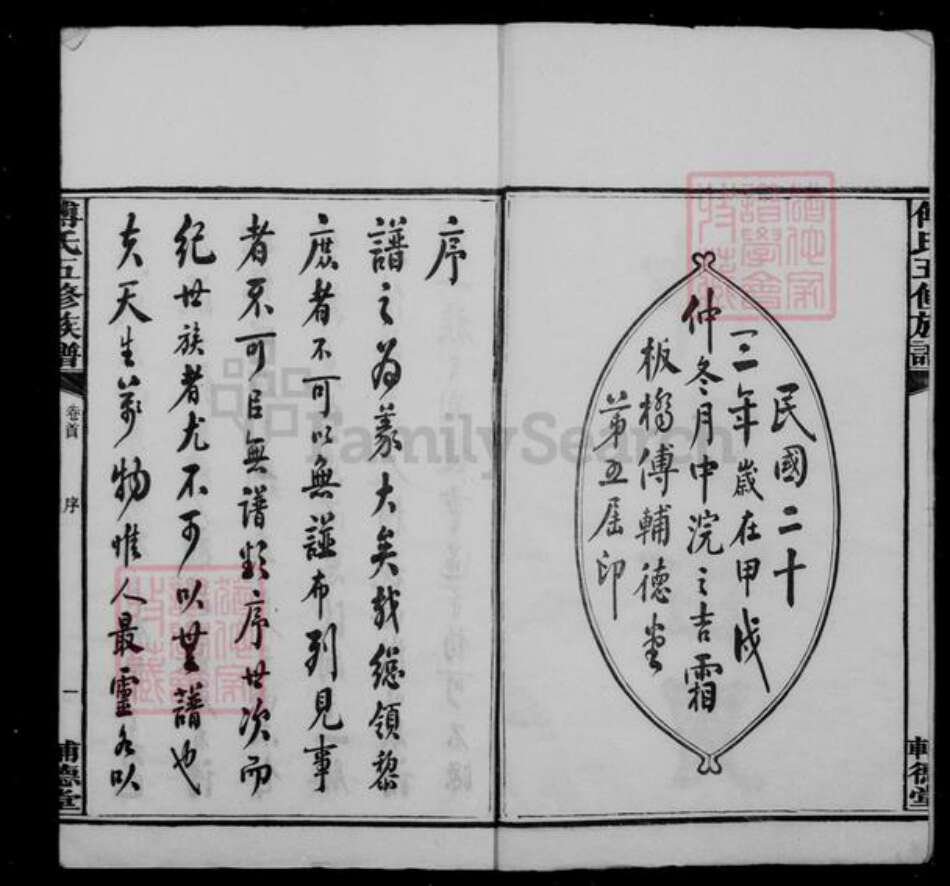 傅氏五修族譜
輔德堂
民國二十
三年歲在甲戌
仲冬月中浣之吉霜
板橋傅輔德堂
第五屆印
序
譜之為義大矣哉總領黎
庶者不可以無譜布列見事
者不可㠯無譜類序世次而
紀世族者尤不可以無譜也
夫天生萬物惟人最靈名以
傅氏五修族譜
卷首
序
一
輔德堂
FamilySearch